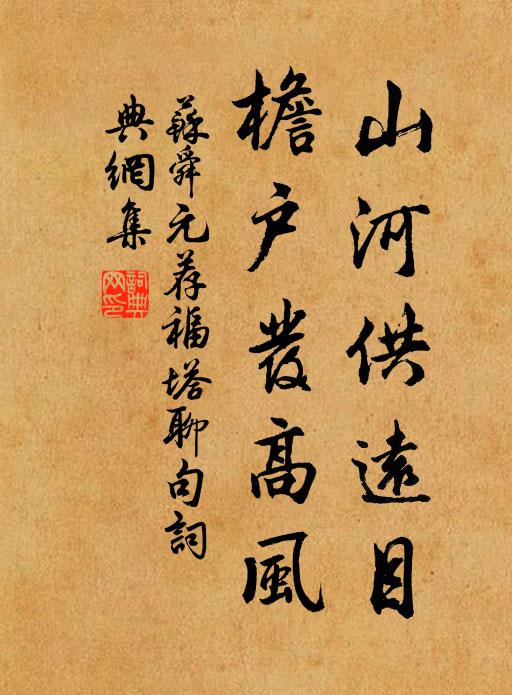 山河供遠目
檐户發高風
蘇舜元荐福塔聊句詞
典網集
詞典
网印